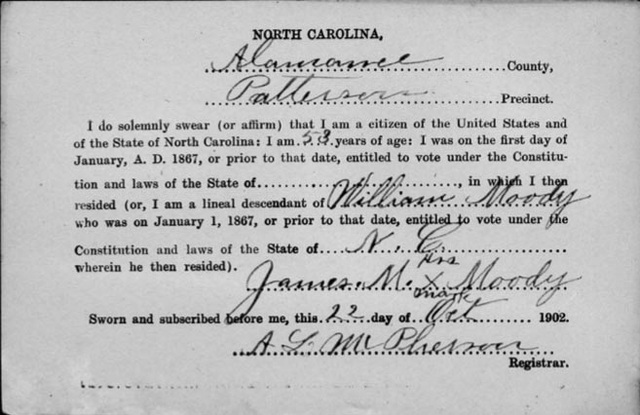 NORTH CAROLINA,
Alamance County,
Patterson Precinct.
I do solemnly swear (or affirm) that I am a citizen of the United States and
of the State of North Carolina: I am 53 years of age: I was on the first day of
January, A. D. 1867, or prior to that date, entitled to vote under the Constitu-
tion and laws of the State of ............, in which I then
resided (or, I am a lineal descendant of William Moody
who was on January 1, 1867, or prior to that date, entitled to vote under the
Constitution and laws of the State of N. C.
wherein he then resided).
his
James. M. X Moody
mark
Sworn and subscribed before me, this 22 day of Oct 1902.
A L McPherson
Registrar.